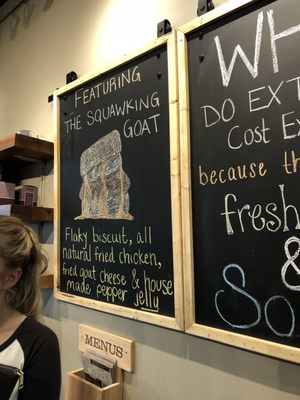 FEATURING
THE SQUAWKING
GOAT
Flaky biscuit, all
natural fried chicken,
fried goat cheese & house
made pepper jelly
WH
DO EXT
Cost Ex
because th
fresh
&
So
MENUS